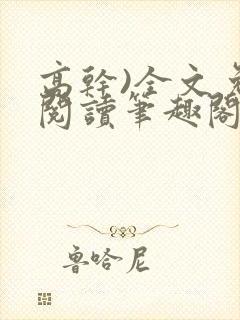 高幹)全文免
閱讀筆趣閣
魯哈尼